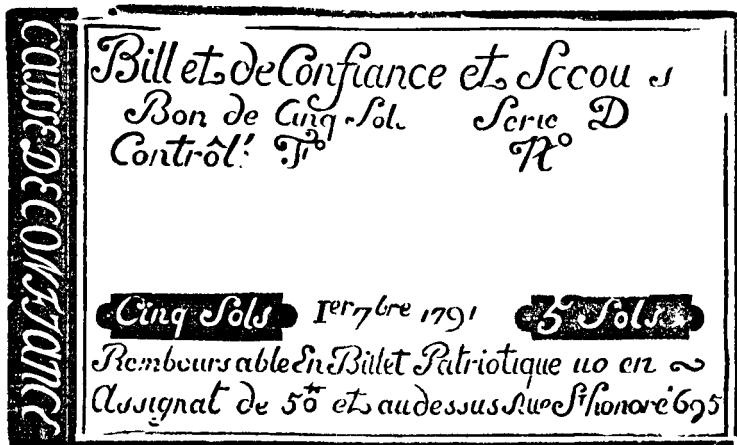 CAISSE DE CONFIANCE
Billet de Confiance et Seccou s
Bon de Cinq Sol. Serie D
Contrôl! F° N°
Cinq Sols 1er 7bre 1791 5 Sols
Remboursable En Billet Patriotique uo en
Assignat de 5tt et audessus Rue St honoré 695